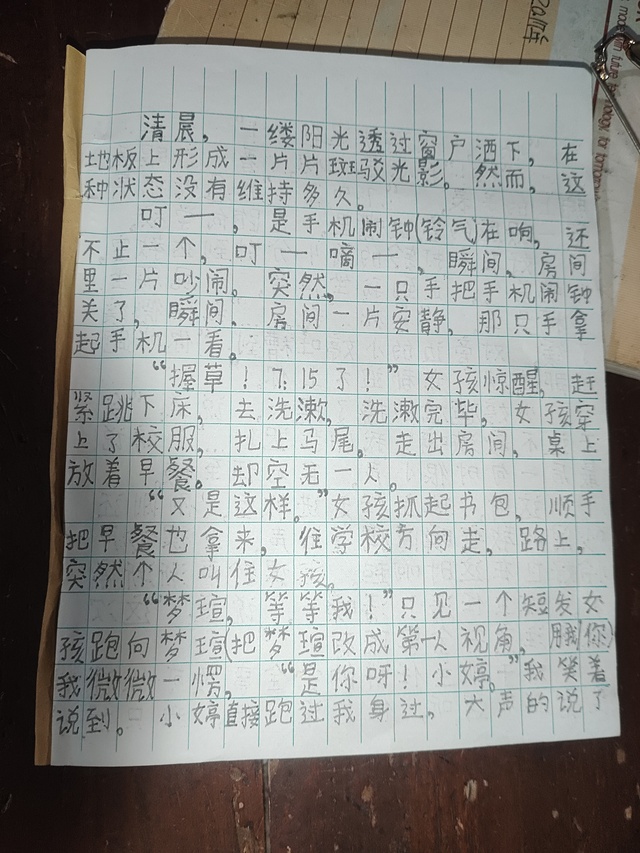 清晨，一缕阳光透过窗户洒下，在
地板上形成一片片斑驳光影。然而，这
种状态没有维持多久。
叮一，是手机闹钟(铃气)在响，还
不止一个，叮一嘀一，瞬间，房间
里一片吵闹。突然，一只手把手机闹钟
关了，瞬间，房间一片安静，那只手拿
起手机一看。
“握草！7:15了！”女孩惊醒，赶
紧跳下床，去洗漱，洗漱完毕，女孩穿
上了校服，扎上马尾。走出房间，桌上
放着早餐。却空无一人。
“又是这样。”女孩抓起书包，顺手
把早餐也拿来，往学校方向走，路上，
突然个人叫住女孩。
“梦瑄，等等我！”只见一个短发女
孩跑向梦瑄(把梦瑄改成第一人视角，用我(你)
我微微一愣，“是你呀！小婷。”我笑着
说到。小婷直接跑过我身过，大声的说了